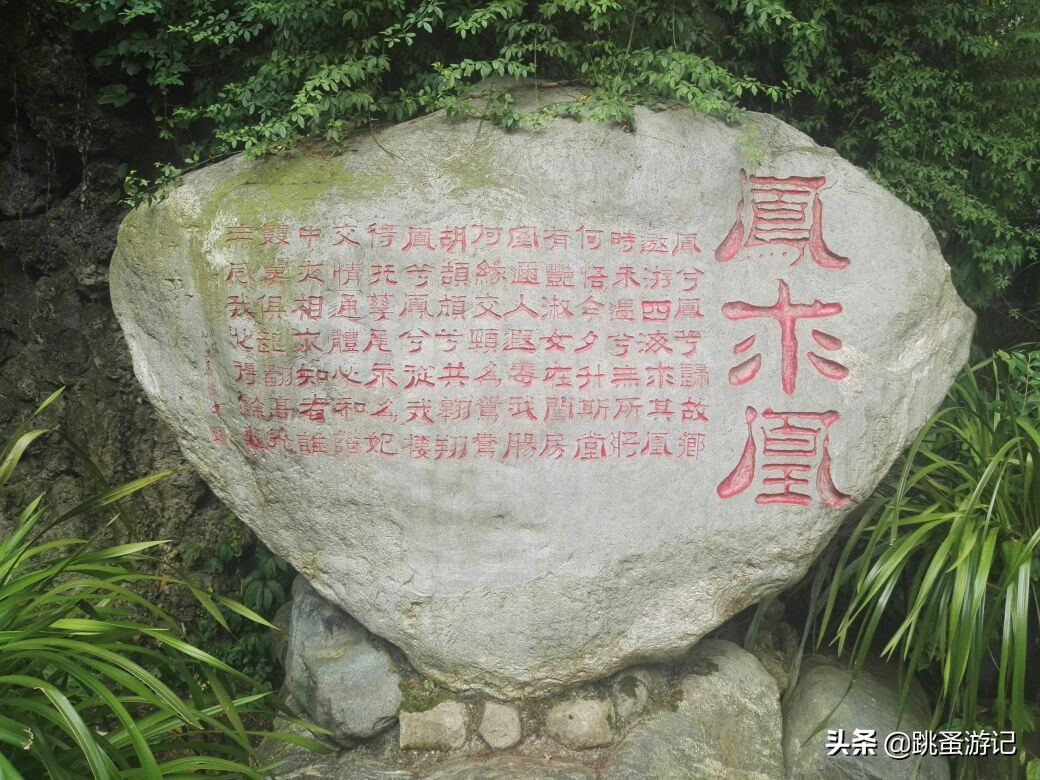 鳳求凰
鳳兮鳳兮歸故鄉
遨游四海求其凰
時未遇兮無所將
何悟今夕升斯堂
有艷淑女在閨房
室邇人遐毒我腸
何緣交頸為鴛鴦
胡頡頏兮共翱翔
鳳兮鳳兮從我棲
得托孳尾永為妃
交情通體心和諧
中夜相從知者誰
雙翼俱起翻高飛
無感我餘悲
头条 @跳蚤游记